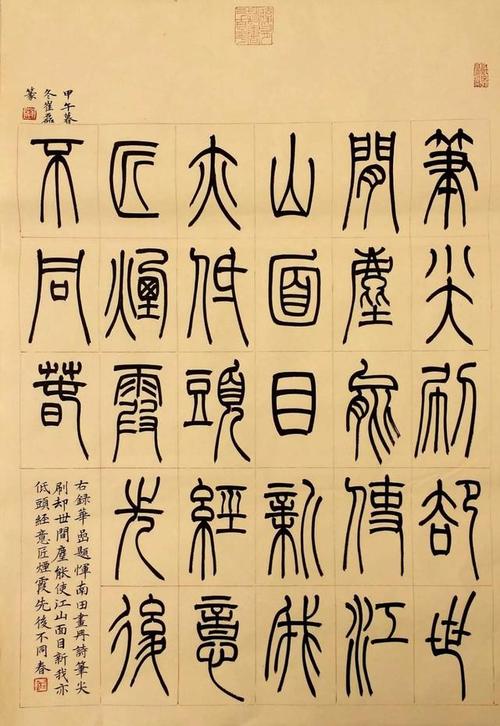 筆尖刷卻世
間塵能使江
山面目新我
亦低頭經意
匠煙霞先後
不同春
右錄華喦題惲南田畫冊詩筆尖
刷却世間塵能使江山面目新我亦
低頭經意匠煙霞先後不同春
甲午暮
冬崔磊
篆